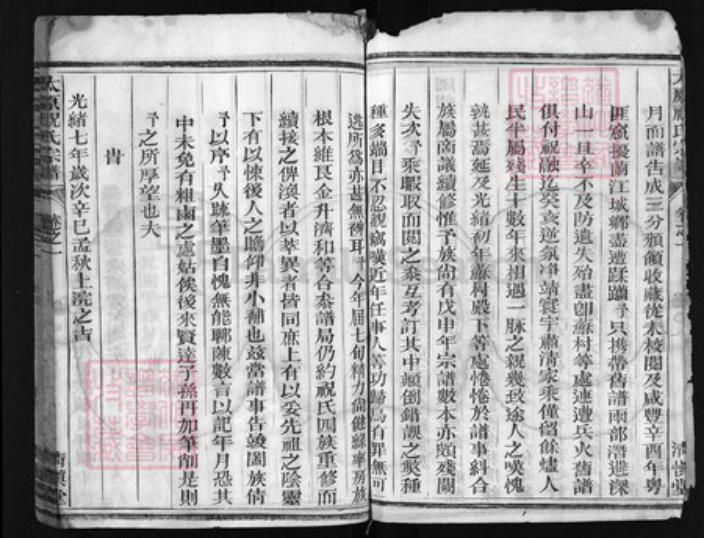 月而譜告成三分頒領收藏從未校閱及咸豐辛酉年粵
匪竄擾蘭江城鄉盡遭蹂躪予只携帶舊譜兩部潛避深
山一旦卒不及防遺失殆盡卽蘇村等處連遭兵火舊譜
俱付祝融迄癸亥逆氛净靖寰宇肅清家乘僅留餘燼人
民半屬殘生十數年來相遇一脉之親幾致途人之嘆愧
孰甚焉延及光緒初年蘇村殿下等處惓惓於譜事糾合
族屬商議續修惟予族尚有戊申年宗譜數本亦頗殘闕
失次予乘暇取而閱之叅互考訂其中顛倒錯亂之繁種
種多端目不忍視竊嘆近年任事人等功歸烏有罪無可
逃所爲亦甚無裨耳予今年屆七旬精力尚健緣率房族
根本維艮金升濟和等合叅譜局仍約祝氏四族重修而
續接之俾渙者以萃異者皆同庶上有以妥先祖之陰靈
下有以悚後人之瞻仰非小補也兹當譜事告竣闔族倩
予以序予久疎筆墨自愧無能聊陳數言以記年月恐其
中未免有粗鹵之處姑俟後來賢達子孫再加筆削是則
予之所厚望也夫
旹
光緒七年歲次辛巳孟秋上浣之吉
太原祝氏宗譜
卷之一
清慎堂